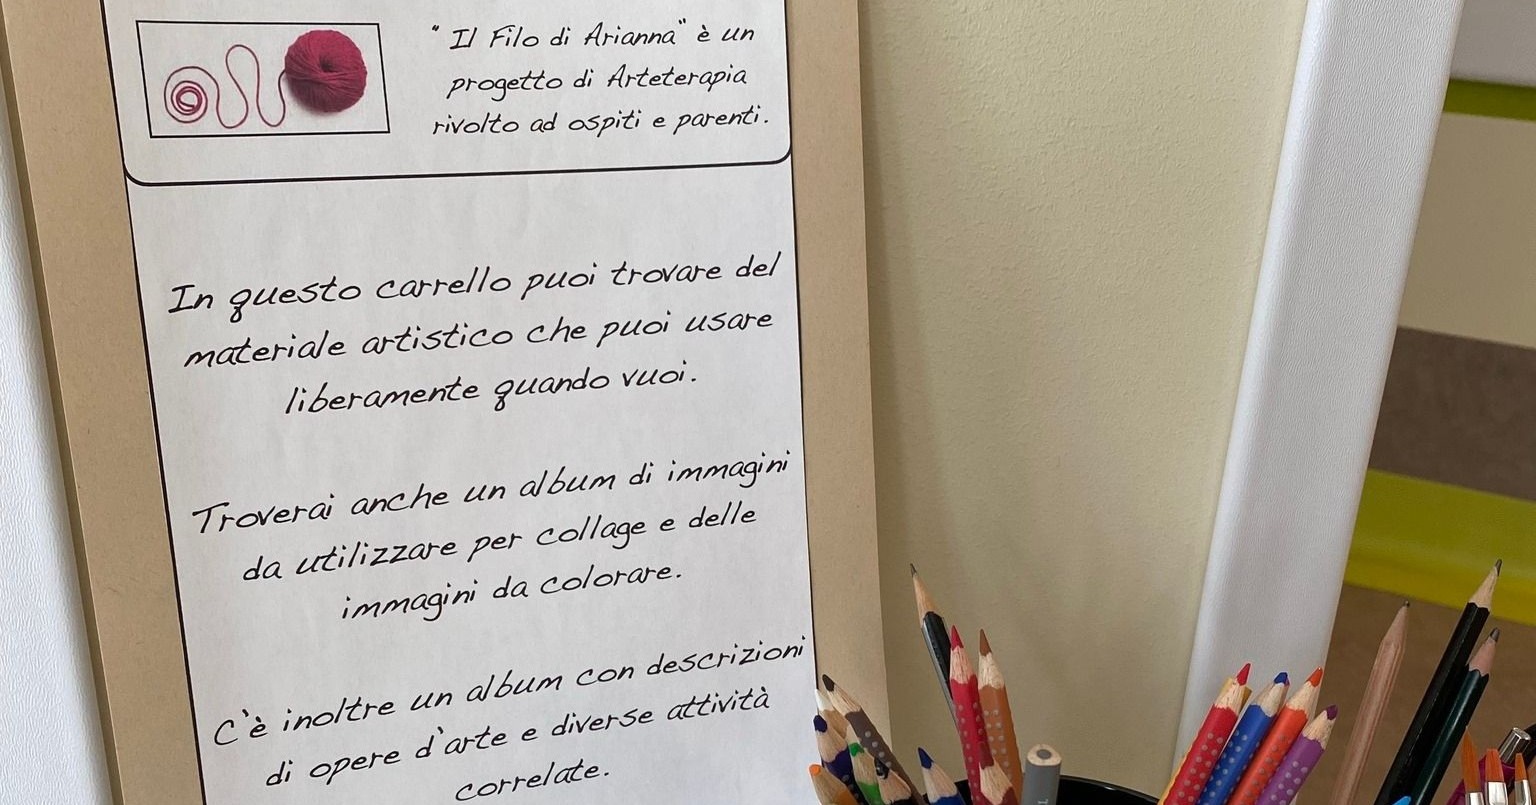 "Il Filo di Arianna" è un
progetto di Arteterapia
rivolto ad ospiti e parenti.
In questo carrello puoi trovare del
materiale artistico che puoi usare
liberamente quando vuoi.
Troverai anche un album di immagini
da utilizzare per collage e delle
immagini da colorare.
C'è inoltre un album con descrizioni
di opere d'arte e diverse attività
correlate.